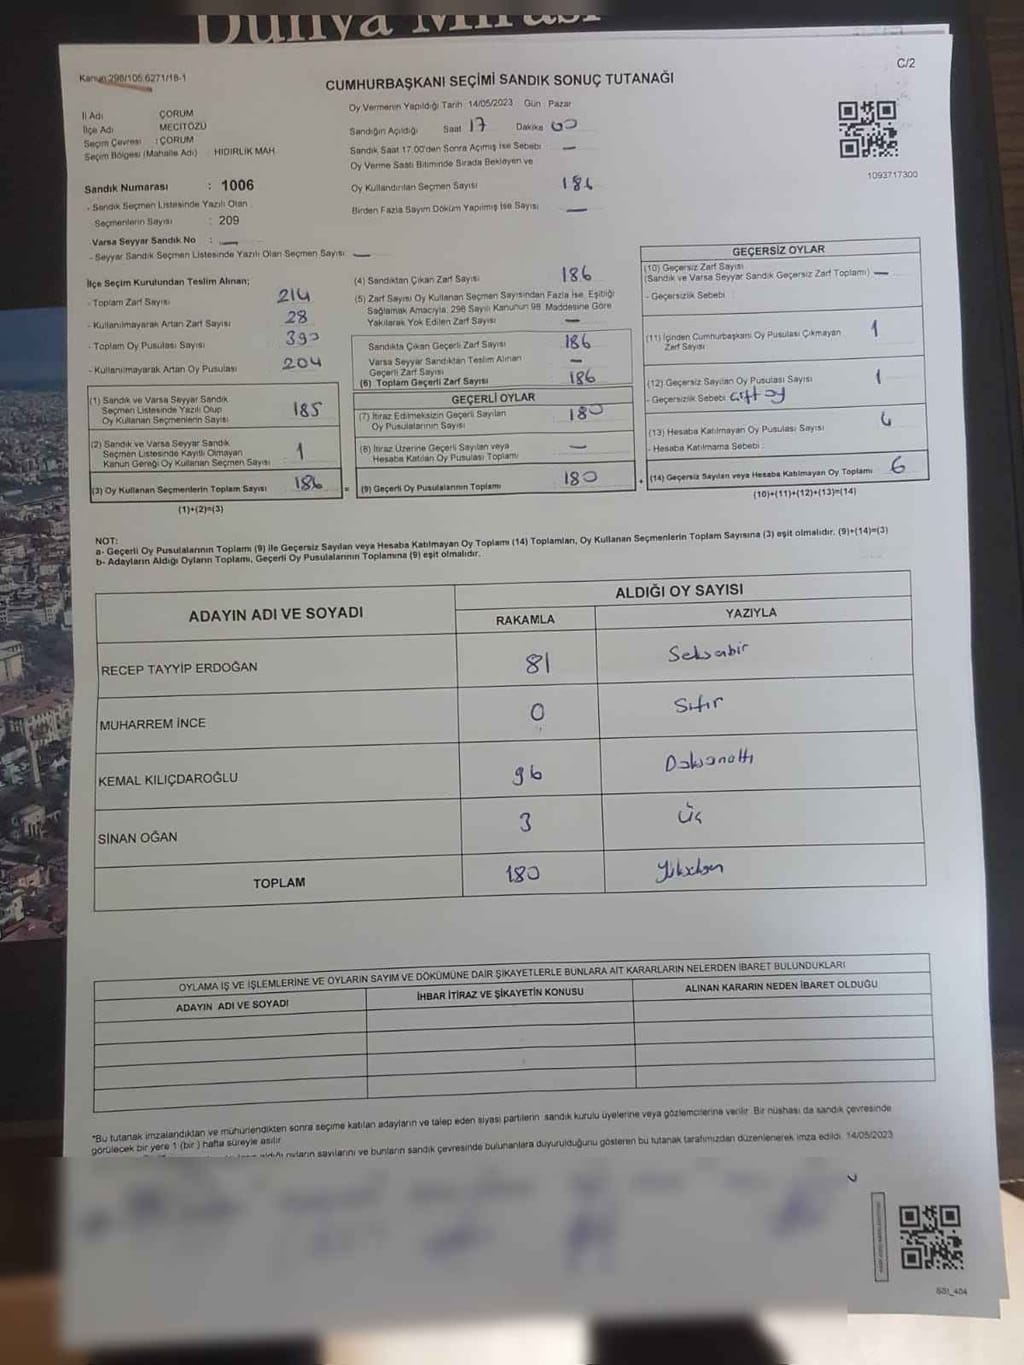 Dünya Mirası
Kanun:298/105.6271/18-1
C/2
CUMHURBAŞKANI SEÇİMİ SANDIK SONUÇ TUTANAĞI
İl Adı ÇORUM
İlçe Adı MECİTÖZÜ
Seçim Çevresi : ÇORUM
Seçim Bölgesi (Mahalle Adı) : HIDIRLIK MAH.
Sandık Numarası : 1006
- Sandık Seçmen Listesinde Yazılı Olan
Seçmenlerin Sayısı : 209
Varsa Seyyar Sandık No : —
- Seyyar Sandık Seçmen Listesinde Yazılı Olan Seçmen Sayısı: —
Oy Vermenin Yapıldığı Tarih : 14/05/2023 Gün : Pazar
Sandığın Açıldığı Saat 17 Dakika 00
Sandık Saat 17.00'den Sonra Açımış İse Sebebi : —
Oy Verme Saati Bitiminde Sırada Bekleyen ve
Oy Kullandırılan Seçmen Sayısı 186
Birden Fazla Sayım Döküm Yapılmış İse Sayısı —
1093717300
İlçe Seçim Kurulundan Teslim Alınan;
- Toplam Zarf Sayısı 214
- Kullanılmayarak Artan Zarf Sayısı 28
- Toplam Oy Pusulası Sayısı 390
- Kullanılmayarak Artan Oy Pusulası 204
(1) Sandık ve Varsa Seyyar Sandık
Seçmen Listesinde Yazılı Olup
Oy Kullanan Seçmenlerin Sayısı 185
(2) Sandık ve Varsa Seyyar Sandık
Seçmen Listesinde Kayıtlı Olmayan
Kanun Gereği Oy Kullanan Seçmen Sayısı 1
(3) Oy Kullanan Seçmenlerin Toplam Sayısı 186
(1)+(2)=(3)
(4) Sandıktan Çıkan Zarf Sayısı 186
(5) Zarf Sayısı Oy Kullanan Seçmen Sayısından Fazla İse, Eşitliği
Sağlamak Amacıyla, 298 Sayılı Kanunun 98. Maddesine Göre
Yakılarak Yok Edilen Zarf Sayısı —
Sandıkta Çıkan Geçerli Zarf Sayısı 186
Varsa Seyyar Sandıktan Teslim Alınan
Geçerli Zarf Sayısı —
(6) Toplam Geçerli Zarf Sayısı 186
GEÇERLİ OYLAR
(7) İtiraz Edilmeksizin Geçerli Sayılan
Oy Pusulalarının Sayısı 180
(8) İtiraz Üzerine Geçerli Sayılan veya
Hesaba Katılan Oy Pusulası Toplamı —
= (9) Geçerli Oy Pusulalarının Toplamı 180
GEÇERSİZ OYLAR
(10) Geçersiz Zarf Sayısı
(Sandık ve Varsa Seyyar Sandık Geçersiz Zarf Toplamı) —
- Geçersizlik Sebebi :
(11) İçinden Cumhurbaşkanı Oy Pusulası Çıkmayan
Zarf Sayısı 1
(12) Geçersiz Sayılan Oy Pusulası Sayısı 1
- Geçersizlik Sebebi : çift oy
(13) Hesaba Katılmayan Oy Pusulası Sayısı 4
- Hesaba Katılmama Sebebi :
+ (14) Geçersiz Sayılan veya Hesaba Katılmayan Oy Toplamı 6
(10)+(11)+(12)+(13)=(14)
NOT:
a- Geçerli Oy Pusulalarının Toplamı (9) ile Geçersiz Sayılan veya Hesaba Katılmayan Oy Toplamı (14) Toplamları, Oy Kullanan Seçmenlerin Toplam Sayısına (3) eşit olmalıdır. (9)+(14)=(3)
b- Adayların Aldığı Oyların Toplamı, Geçerli Oy Pusulalarının Toplamına (9) eşit olmalıdır.
ADAYIN ADI VE SOYADI ALDIĞI OY SAYISI
RAKAMLA YAZIYLA
RECEP TAYYİP ERDOĞAN 81 Seksenbir
MUHARREM İNCE 0 Sıfır
KEMAL KILIÇDAROĞLU 96 Doksanaltı
SİNAN OĞAN 3 Üç
TOPLAM 180 Yükseksen
OYLAMA İŞ VE İŞLEMLERİNE VE OYLARIN SAYIM VE DÖKÜMÜNE DAİR ŞİKAYETLERLE BUNLARA AİT KARARLARIN NELERDEN İBARET BULUNDUKLARI
ADAYIN ADI VE SOYADI İHBAR İTİRAZ VE ŞİKAYETİN KONUSU ALINAN KARARIN NEDEN İBARET OLDUĞU
*Bu tutanak imzalandıktan ve mühürlendikten sonra seçime katılan adayların ve talep eden siyasi partilerin sandık kurulu üyelerine veya gözlemcilerine verilir. Bir nüshası da sandık çevresinde
görülecek bir yere 1 (bir ) hafta süreyle asılır.
aldığı oyların sayılarını ve bunların sandık çevresinde bulunanlara duyurulduğunu gösteren bu tutanak tarafımızdan düzenlenerek imza edildi. 14/05/2023
SS1_404